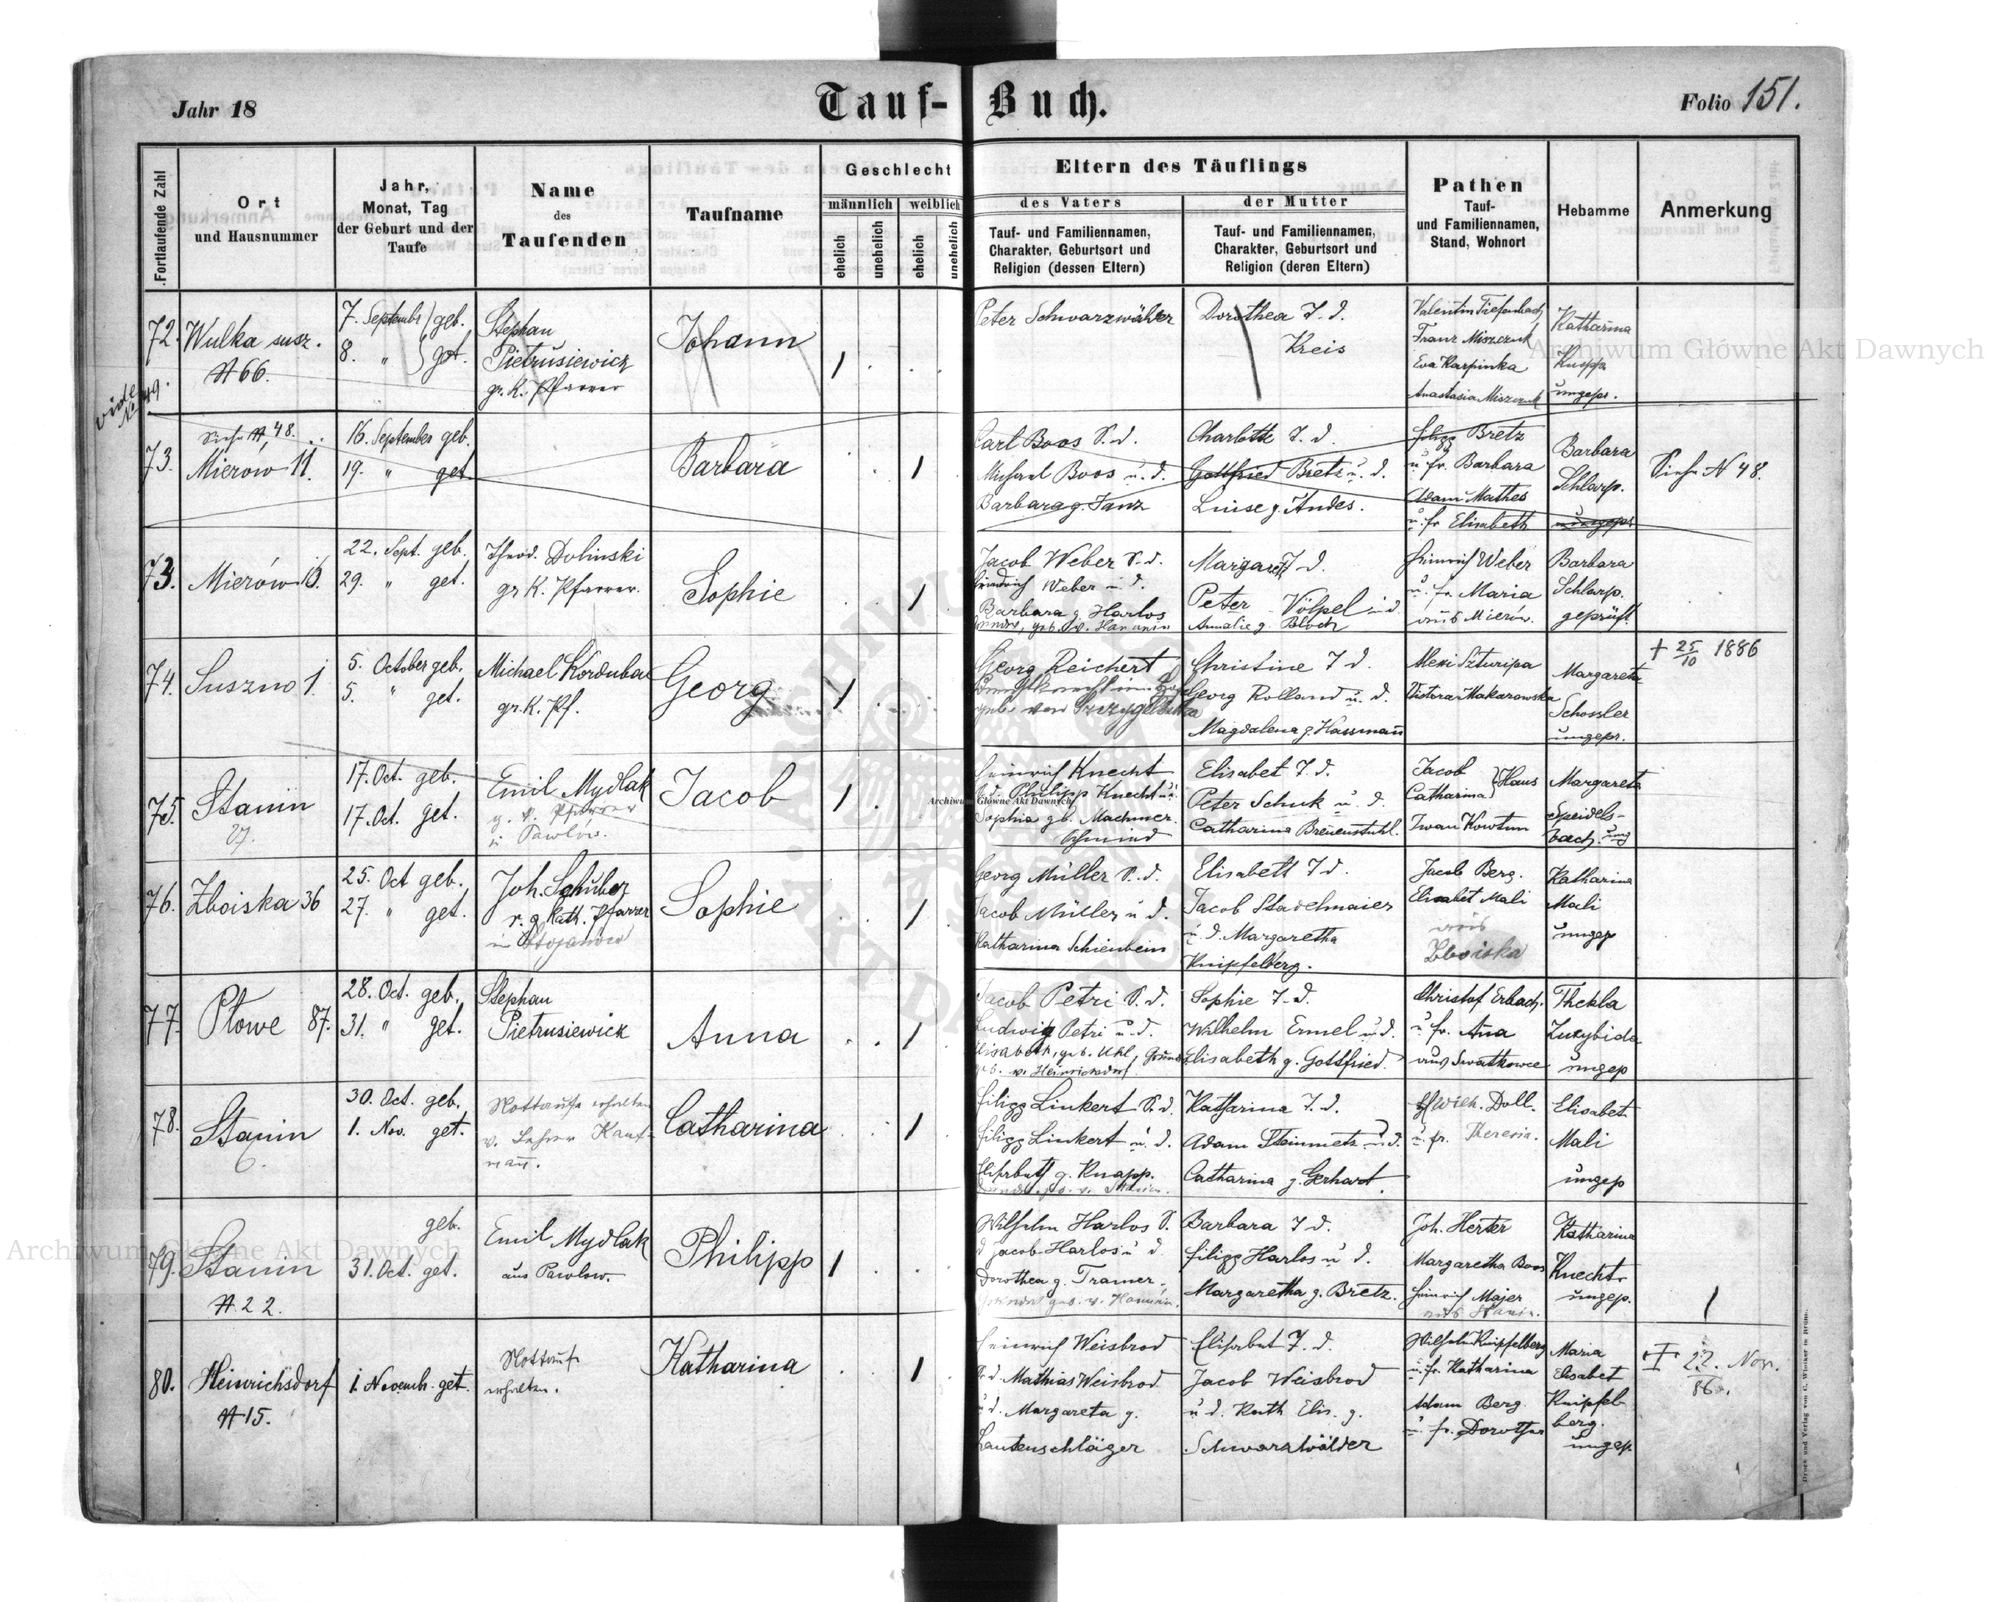 Jahr 18
Tauf-Buch.
Folio 151.
Fortlaufende Zahl
Ort
und Hausnummer
Jahr,
Monat, Tag
der Geburt und der
Taufe
Name
des
Taufenden
Taufname
Geschlecht
männlich
weiblich
ehelich
unehelich
ehelich
unehelich
Eltern des Täuflings
des Vaters
der Mutter
Tauf- und Familiennamen,
Charakter, Geburtsort und
Religion (dessen Eltern)
Tauf- und Familiennamen,
Charakter, Geburtsort und
Religion (deren Eltern)
Pathen
Tauf-
und Familiennamen,
Stand, Wohnort
Hebamme
Anmerkung
vide
No 49.
72.
Wulka susz.
N 66.
7. Septembr geb.
8. " get.
Stephan
Pietrusiewicz
gr. K. Pfarrer
Johann
1
Peter Schwarzwälder
Dorothea T. d.
Kreis
Valentin Tiefenbach
Franz Miszczuk
Eva Karpinka
Anastasia Miszczuk
Katharina
Knopp
ungepr.
73.
Siehe N 48.
Mierów 11.
16. September geb.
19. " get.
Barbara
1
Carl Boos S. d.
Michael Boos u. d.
Barbara g. Janz
Charlotte T. d.
Gottfried Bretz u. d.
Luise g. Andes.
Filipp Bretz
u. fr. Barbara
Adam Mathes
u. fr Elisabeth
Barbara
Schlarp.
ungepr
Siehe N 48.
73.
Mierów
22. Sept. geb.
29. " get.
Theod. Dolinski
gr K. Pfarrer.
Sophie
1
Jacob Weber S. d.
Friedrich Weber u. d.
Barbara g. Harlos
Margaret T d.
Peter Völpel u d.
Amalie g. Bloch
Heinrich Weber
u. fr. Maria
aus Mierów.
Barbara
Schlarp.
geprüft
74.
Suszno 1.
5. October geb.
5. " get.
Michael Korduba
gr. K. Pf.
Georg
1
Georg Reichert
Christine T d.
Georg Rolland u. d.
Magdalena g. Hassmann
Alexi Szturipa
Victoria Makarowska
Margareta
Schossler
ungepr.
+ 25/10 1886
75.
Stanin
27.
17. Oct. geb.
17. Oct. get.
Emil Mydlak
g. k. Pfarrer
in Pawlów.
Jacob
1
Heinrich Knecht
S. d. Philipp Knecht u.
Sophia gb. Machmer
Schmied
Elisabet T. d.
Peter Schuk u. d.
Catharina Breuenstuhl.
Jacob
Catharina } Haus
Iwan Kowtun
Margareta
Speidels-
bach. ung
76.
Zboiska 36
25. Oct geb.
27. " get.
Joh. Schuber
r. g. kath. Pfarrer
in Stojanów
Sophie
1
Georg Müller S. d.
Jacob Müller u d.
Katharina Schienbein
Elisabett T d.
Jacob Stadelmaier
u. d. Margaretha
Knipfelberg.
Jacob Berg.
Elisabet Mali
aus
Zboiska
Katharina
Mali
ungep
77.
Płowe 87.
28. Oct. geb.
31. " get.
Stephan
Pietrusiewicz
Anna
1
Jacob Petri S. d.
Ludwig Petri u. d.
Elisabeth, geb. Uhl, Grund
geb. v. Heinrichsdorf
Sophie T. d.
Wilhelm Ermel u. d.
Elisabeth g. Gottfried.
Christof Erbach.
u. fr. Ana
aus Swatkowce
Thekla
ungep
78.
Stanin
6.
30. Oct. geb.
1. Nov. get.
Nottaufe erhalten
v. Lehrer Kauf-
mañ.
Catharina
1
Filipp Linkert S. d.
Filipp Linkert u. d.
Elisabeth g. Knapp.
Katharina T. d.
Adam Steinmetz u. d.
Catharina g. Gerhart.
Wilh. Doll.
u. fr. Theresia.
Elisabet
Mali
ungep
79.
Stanin
N. 22.
geb.
31. Oct. get.
Emil Mydlak
aus Pawlow.
Philipp
1
Wilhelm Harlos S.
d Jacob Harlos u d.
Dorothea g. Tramer.
Barbara T d.
Filipp Harlos u d.
Margaretha g. Bretz.
Joh. Herter
Margaretha Boos
Heinrich Majer
aus Stanin.
Katharina
Knecht
ungep.
80.
Heinrichsdorf
N 15.
1. Novemb. get.
Nottauf
erhalten.
Katharina
1
Heinrich Weisbrod
S. d. Mathias Weisbrod
u d. Margareta g.
Lautenschläger
Elisabet T. d.
Jacob Weisbrod
u d. Kath Elis. g.
Schwarzwälder
Wilhelm Knipfelberg
u. fr. Katharina
Adam Berg.
u. fr. Dorothea
Maria
Elisabet
Knipfel
berg.
ungep.
+ 22. Nov.
86.
Archiwum Główne Akt Dawnych
Archiwum Główne Akt Dawnych
Archiwum Główne Akt Dawnych